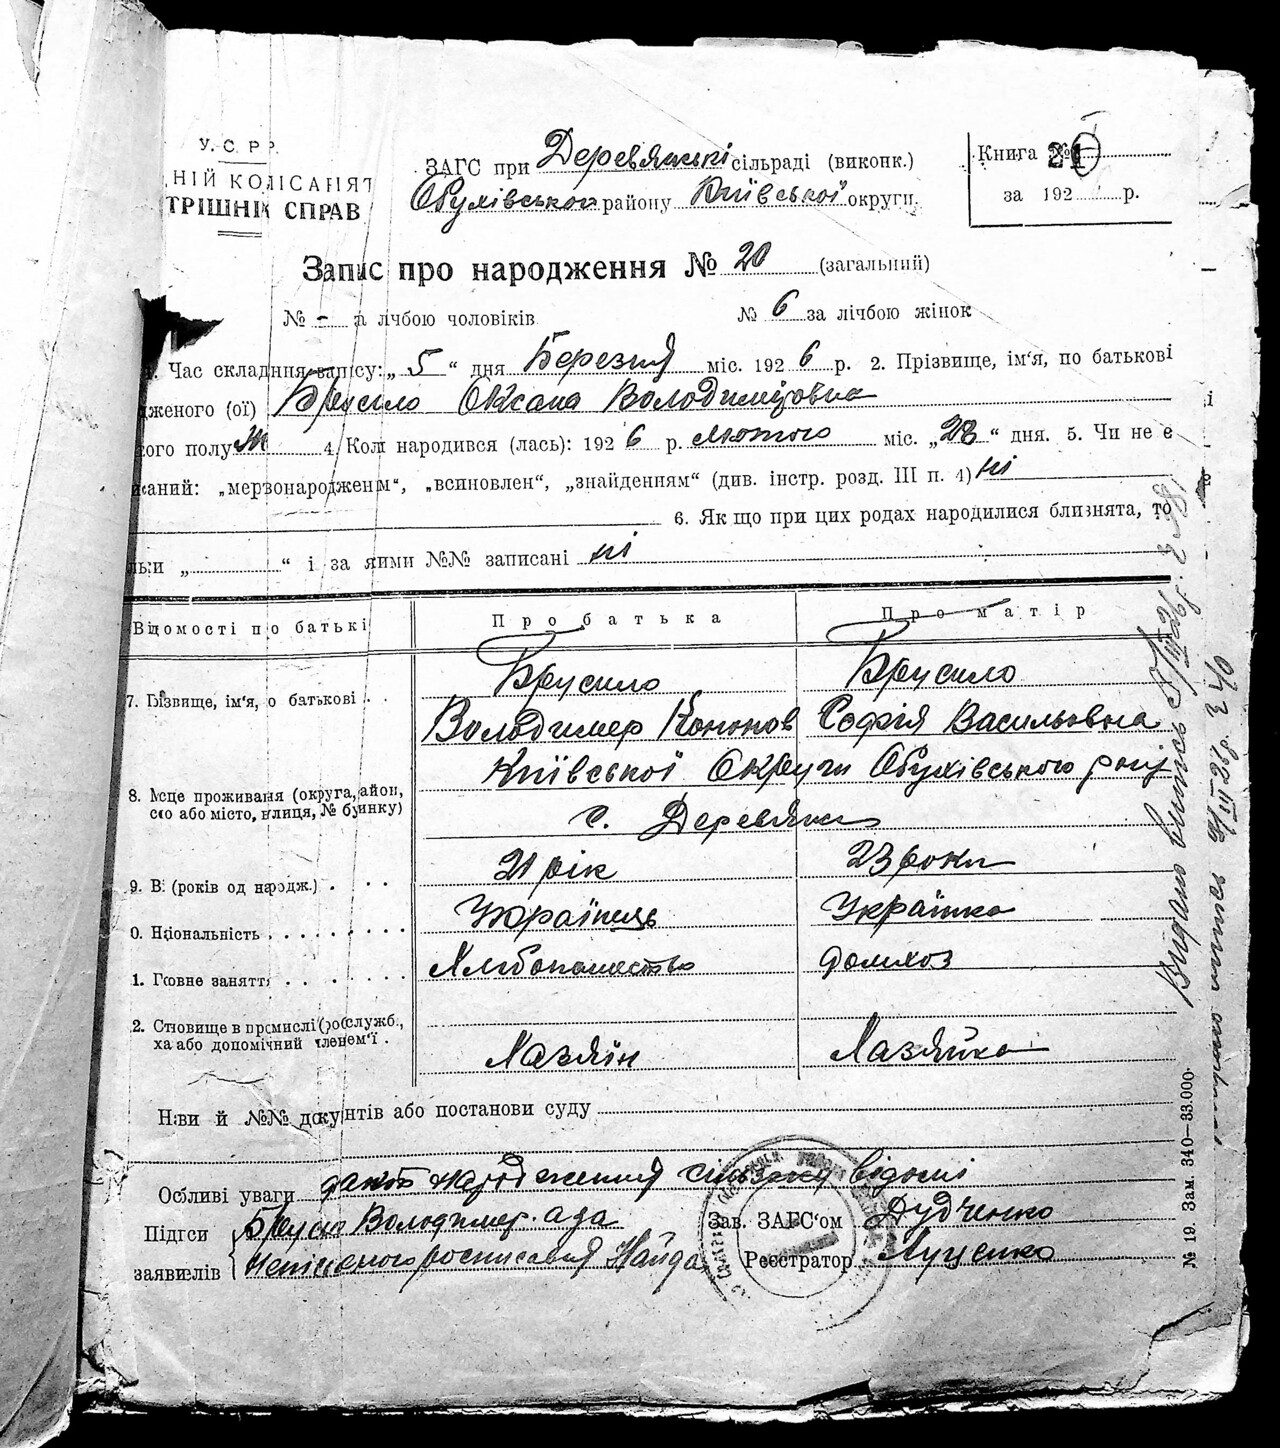 У. С. Р. Р.
НІЙ КОМІСАРІЯТ
ТРІШНІХ СПРАВ
ЗАГС при Деревянські сільраді (виконк.)
Обухівського району Київської округи.
Книга № 21
за 192 р.
Запис про народження № 20 (загальний)
№ - а лічбою чоловіків № 6 за лічбою жінок
1. Час складання запису: „ 5 “ дня Березня міс. 192 6 р. 2. Прізвище, ім'я, по батькові
дженого (ої) Брусило Оксана Володимировна
кого полу Ж 4. Колі народився (лась): 192 6 р. Лютого міс. „ 28 “ дня. 5. Чи не є
исаний: „мертвонародженим“, „всиновлен“, „знайденням“ (див. інстр. розд. III п. 4) ні
6. Як що при цих родах народилися близнята, то
льки „ “ і за якими №№ записані ні
Відомості по батькі Про батька Про матір
7. Прізвище, ім'я, по батькові . . Брусило Брусило
Володимер Кононов Софія Васильовна
8. Місце проживання (округа, район, Київської Округи Обухівського рай
село або місто, вулиця, № будинку) с. Деревяна
9. Вік (років од народж.) . . . . 21 рік 23 роки
0. Національність . . . . . . . . Українець Українка
1. Головне заняття . . . . . . Хлібопашество Домхоз
2. Становище в промислі (роб., служб.,
ха або допомічний членсім'ї . Хазяїн Хазяйка
Назви й №№ документів або постанови суду
Особливі уваги народження відомі
Підписи Володимер Зав. ЗАГС'ом Дудченко
заявителів Найда Реєстратор Луценко
№ 19. Зам. 340—33.000.
Видано випись